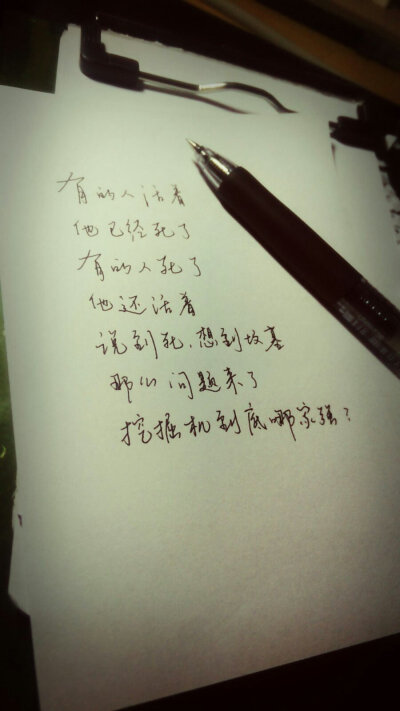 有的人活着
他已经死了
有的人死了
他还活着
说到死.想到坟墓
那么问题来了
挖掘机到底哪家强?